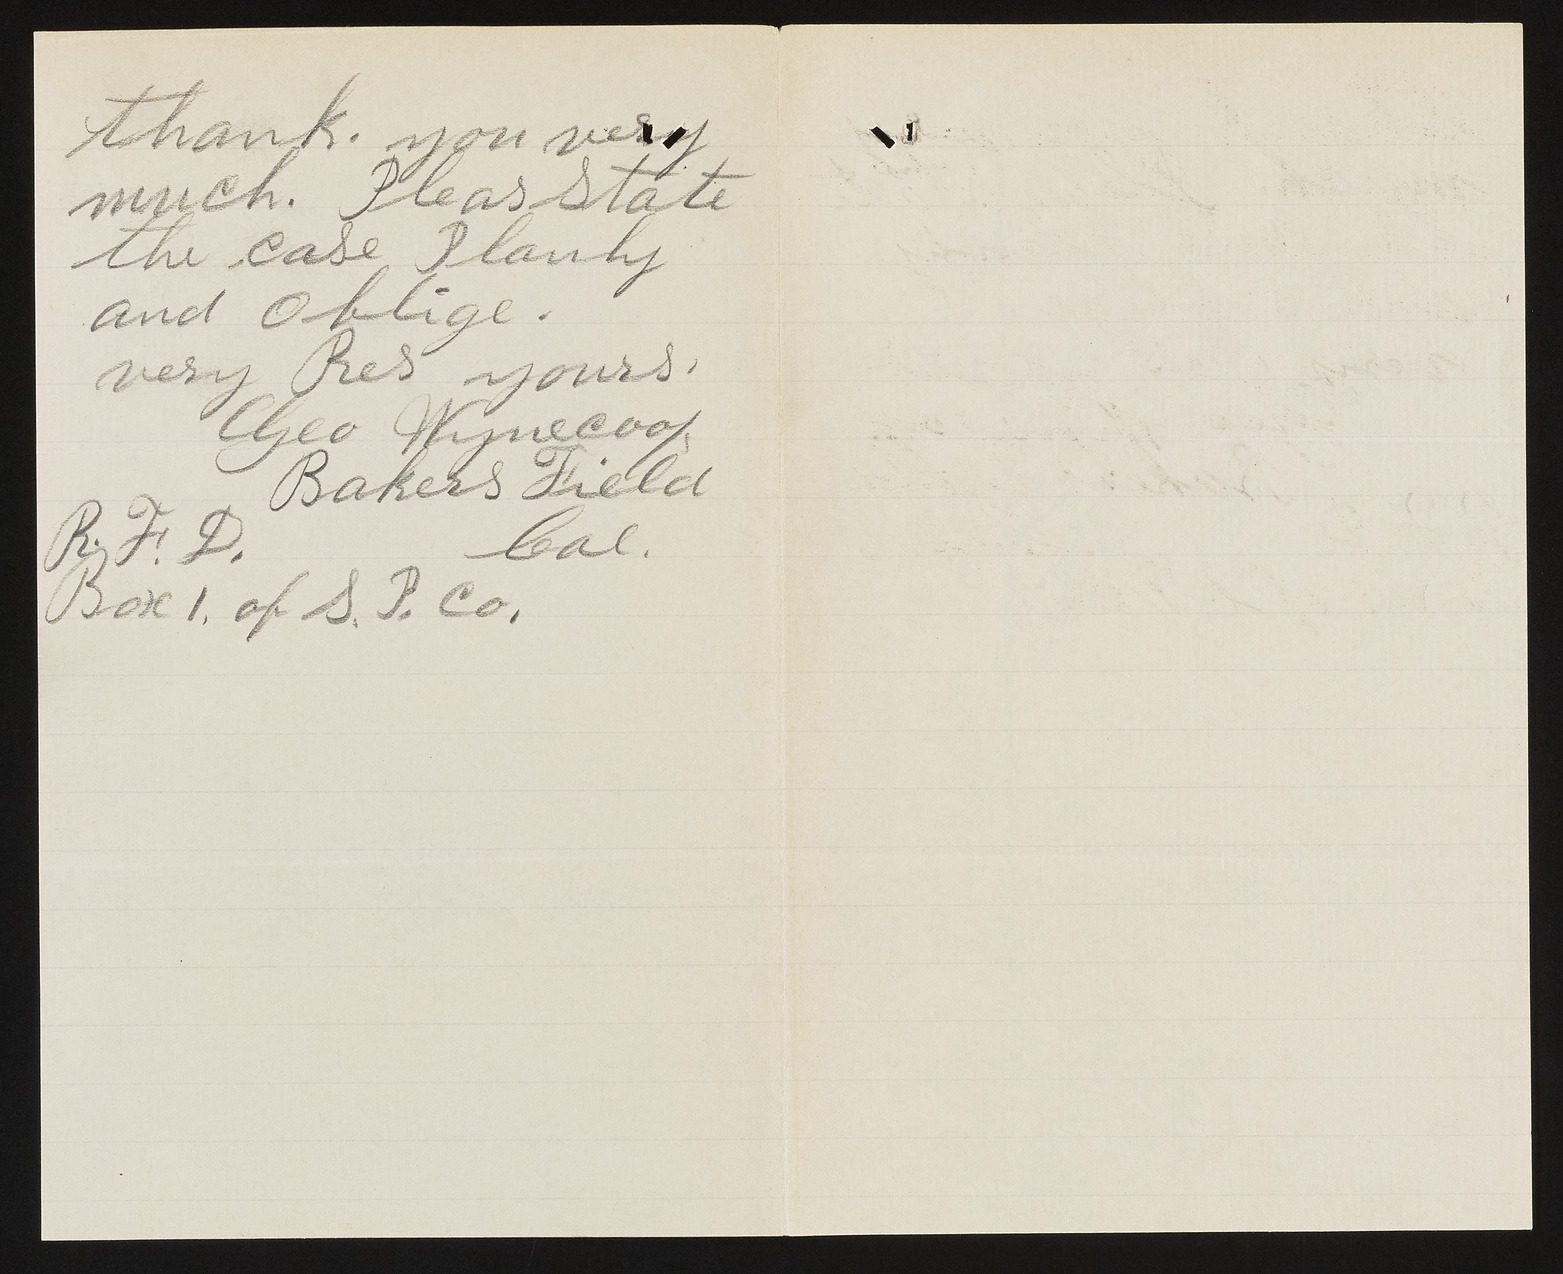 thank. you very
much. Pleas State
the case Planly
and Oblige.
very Res yours.
Geo Wynecoop
Bakers Field
R. F. D. Cal.
Box 1. of S. P. Co.